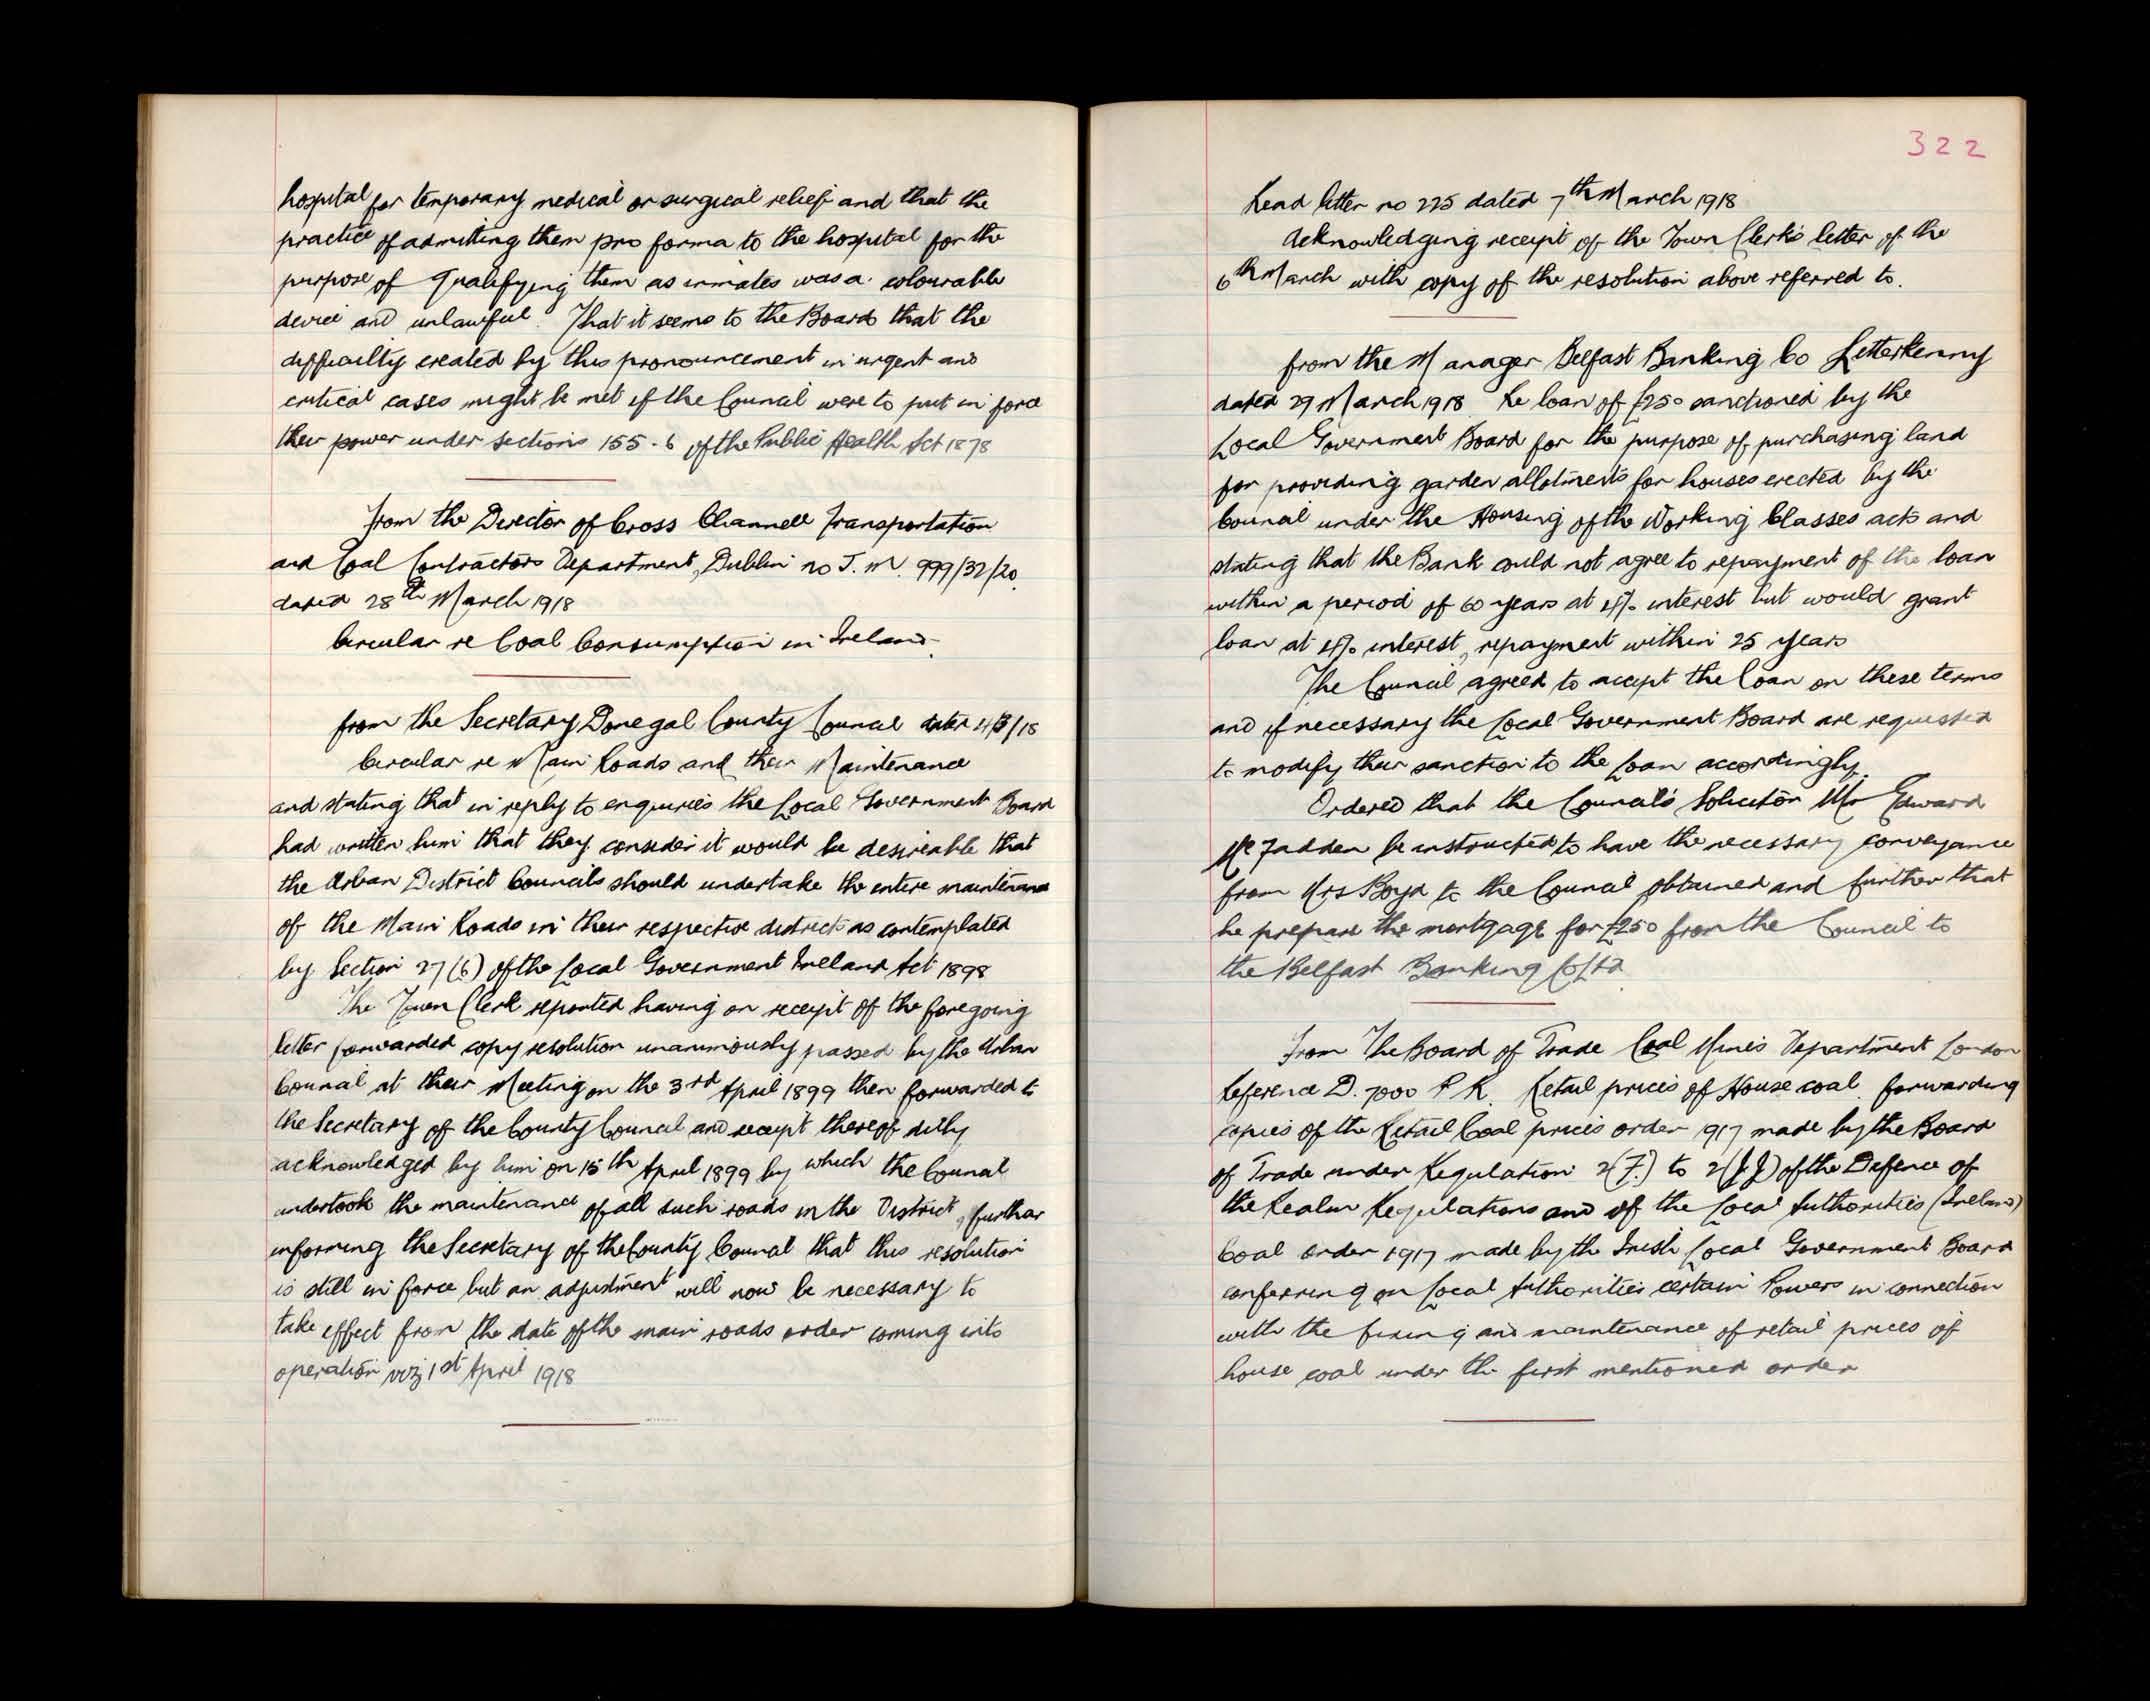 hospital for temporary medical or surgical relief and that the
practice of admitting them pro forma to the hospital for the
purpose of qualifying them as inmates was a colourable
device and unlawful. That it seems to the Board that the
difficulty created by this pronouncement in urgent and
critical cases might be met if the Council were to put in force
their power under sections 155-6 of the Public Health Act 1878
From the Director of Cross Channell Transportation
and Coal Contractors Department, Dublin no J. M. 999/32/20.
dated 28th March 1918
Circular re Coal Consumption in Ireland.
from the Secretary Donegal County Council dated 4/3/18
Circular re Main Roads and their Maintenance
and stating that in reply to enquiries the Local Government Board
had written him that they consider it would be desireable that
the Urban District Councils should undertake the entire maintenance
of the Main Roads in their respective districts as contemplated
by Section 27(6) of the Local Government Ireland Act 1898
The Town Clerk reported having on receipt of the foregoing
letter forwarded copy resolution unanimously passed by the Urban
Council at their Meeting on the 3rd April 1899 then forwarded to
the Secretary of the County Council and receipt thereof dully
acknowledged by him on 15th April 1899 by which the Council
undertook the maintenance of all such roads in the District, further
informing the Secretary of the County Council that this resolution
is still in force but an adjustment will now be necessary to
take effect from the date of the main roads order coming into
operation viz 1st April 1918
322
Read letter no 225 dated 7th March 1918
Acknowledging receipt of the Town Clerk's letter of the
6th March with copy of the resolution above referred to.
from the Manager Belfast Banking Co Letterkenny
dated 29 March 1918 Re loan of £250 sanctioned by the
Local Government Board for the purpose of purchasing land
for providing garden allotments for houses erected by the
Council under the Housing of the Working Classes acts and
stating that the Bank could not agree to repayment of the loan
within a period of 60 years at 4% interest but would grant
loan at 4% interest, repayment within 25 years
The Council agreed to accept the Loan on these terms
and if necessary the Local Government Board are requested
to modify their sanction to the Loan accordingly.
Ordered that the Council's Solicitor Mr Edward
McFadden be instructed to have the necessary conveyance
from Mrs Boyd to the Council obtained and further that
he prepare the mortgage for £250 from the Council to
the Belfast Banking Co Ltd
From The Board of Trade Coal Mines Department London
Reference D. 7000 P R. Retail prices of House coal. forwarding
copies of the Retail Coal prices order 1917 made by the Board
of Trade under Regulation 2(F.) to 2(JJ) of the Defence of
the Realm Regulations and of the Local Authorities (Ireland)
Coal order 1917 made by the Irish Local Government Board
conferring on Local Authorities certain Powers in connection
with the fixing and maintenance of retail prices of
house coal under the first mentioned order